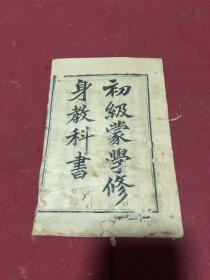 初級蒙學修
身教科書